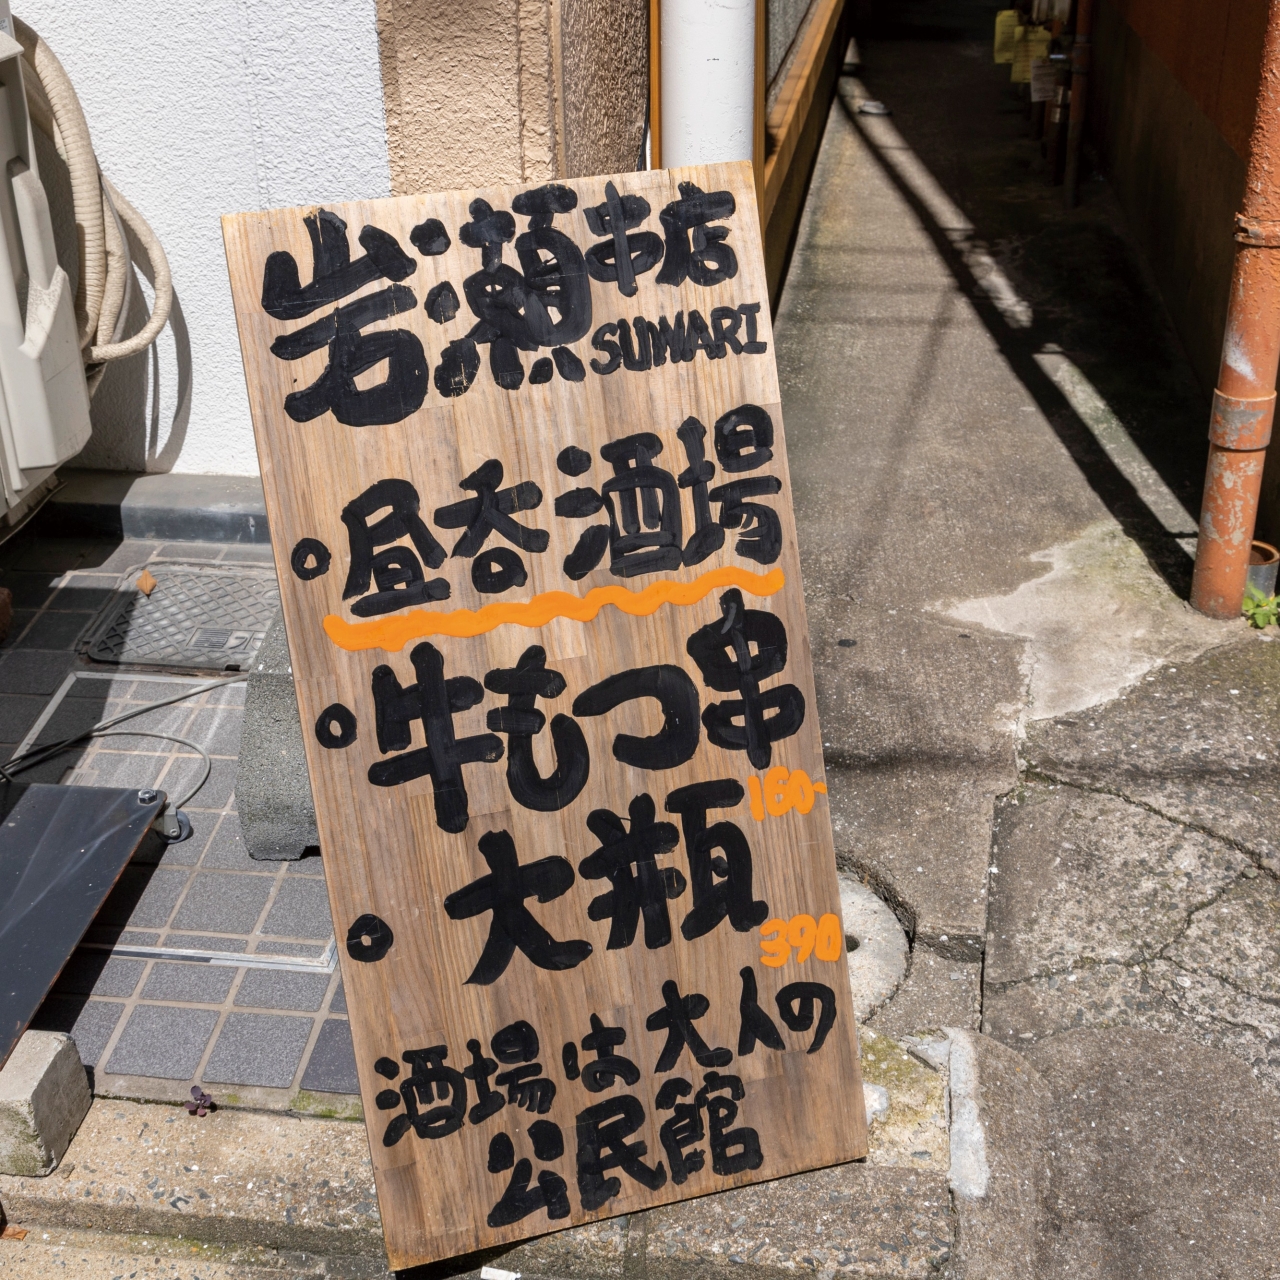 岩瀬串店
SUWARI
昼呑酒場
牛もつ串
160-
大瓶
390
酒場は大人の
公民館